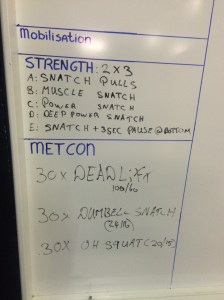 Mobilisation
STRENGTH: 2 x 3
A: SNATCH PULLS
B: MUSCLE SNATCH
C: POWER SNATCH
D: DEEP POWER SNATCH
E: SNATCH + 3SEC PAUSE @ BOTTOM
METCON
30 x DEADLiFT
100/60
30 x DUMBELL SNATCH
(24/16)
30x OH SQUAT (20/15)